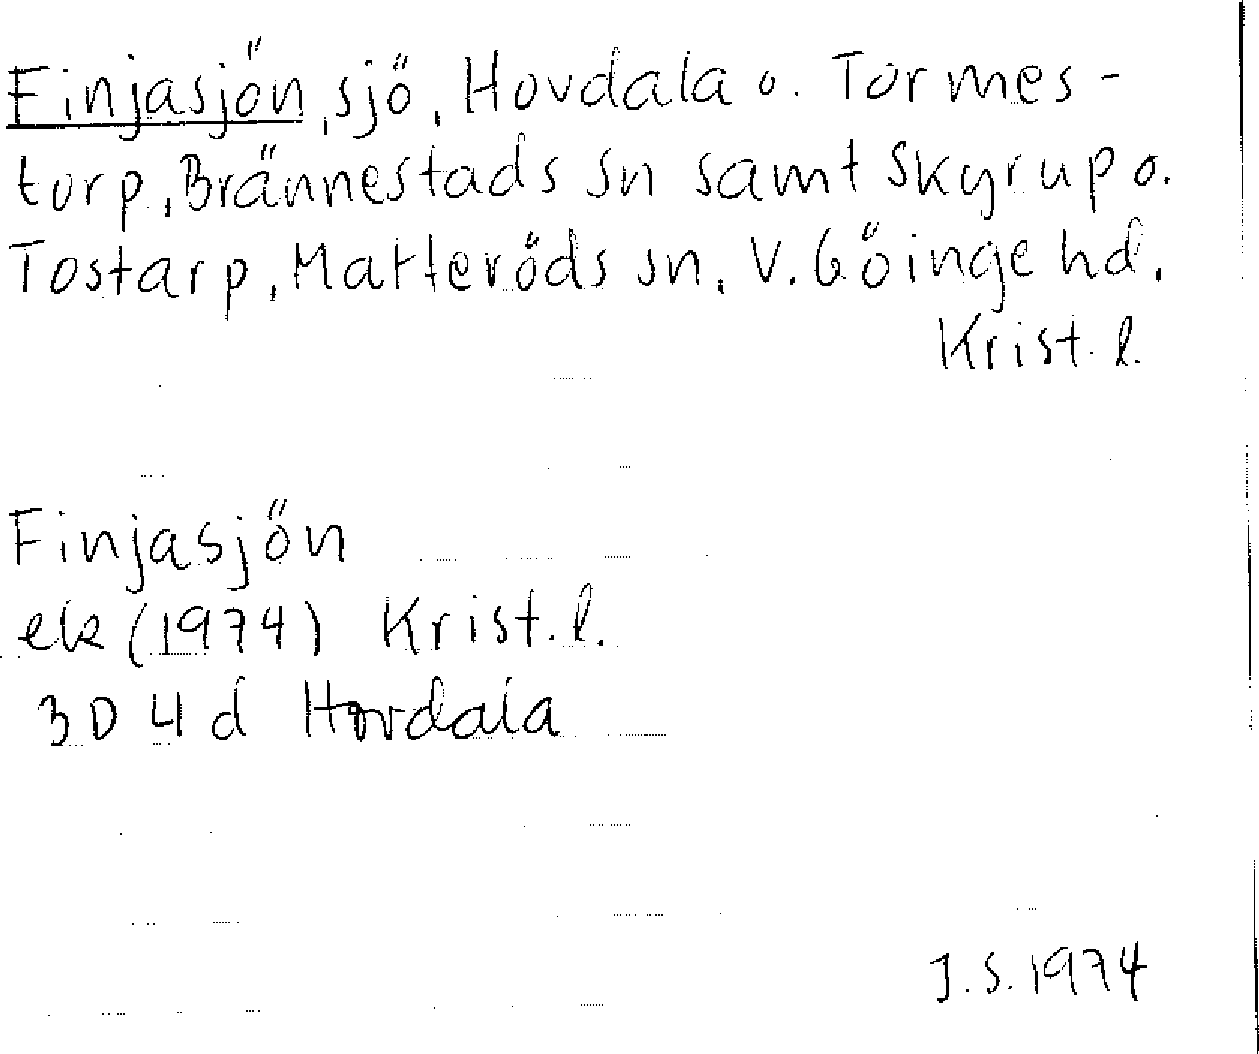 Finjasjön, sjö, Hovdala o. Tormes-
torp, Brännestads sn samt Skyrup o.
Tostarp, Matteröds sn, V. Göinge hd.
Krist. l.
Finjasjön
ek (1974) Krist. l.
3D 4d Hovdala
J.S. 1974